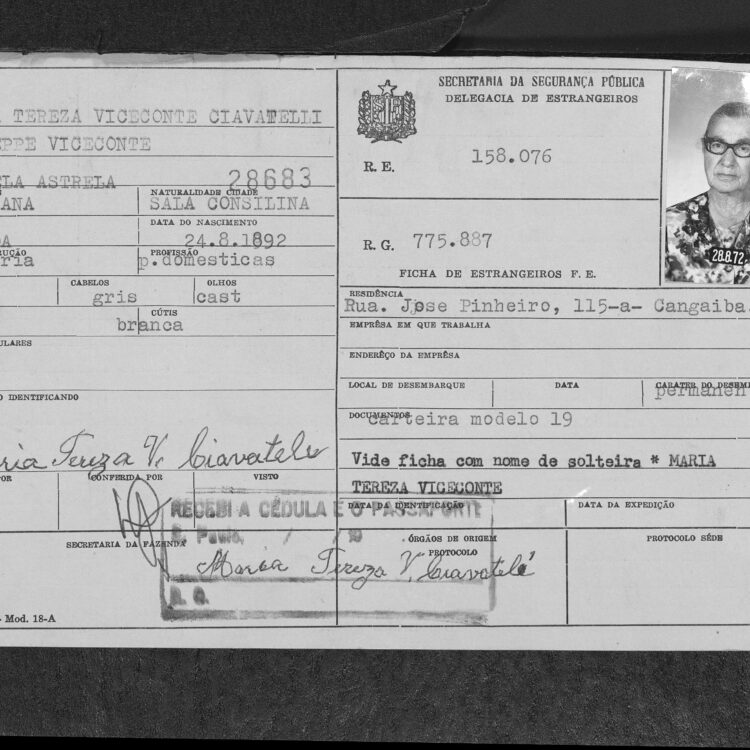 TEREZA VICECONTE CIAVATELLI
EPPE VICECONTE
LA ASTRELA 28683
NATURALIDADE CIDADE
ANA SALA CONSILINA
DATA DO NASCIMENTO
24.8.1892
RUÇÃO PROFISSÃO
ria p.domesticas
CABELOS OLHOS
gris cast
CÚTIS
branca
ULARES
O IDENTIFICANDO
ria Tereza V. Ciavatele
POR CONFERIDA POR VISTO
SECRETARIA DA FAZENDA
Mod. 18-A
SECRETARIA DA SEGURANÇA PÚBLICA
DELEGACIA DE ESTRANGEIROS
R. E. 158.076
R. G. 775.887
FICHA DE ESTRANGEIROS F. E.
28.8.72
RESIDÊNCIA
Rua. Jose Pinheiro, 115-a- Cangaiba
EMPRÊSA EM QUE TRABALHA
ENDERÊÇO DA EMPRÊSA
LOCAL DE DESEMBARQUE DATA CARATER DO DESEM
permanen
DOCUMENTOS
carteira modelo 19
Vide ficha com nome de solteira * MARIA
TEREZA VICECONTE
DATA DA IDENTIFICAÇÃO DATA DA EXPEDIÇÃO
ÓRGÃOS DE ORIGEM PROTOCOLO SÉDE
PROTOCOLO
RECEBI A CÉDULA E O PASSAPORTE
S. Paulo, / / 19
Maria Tereza V. Ciavatelé